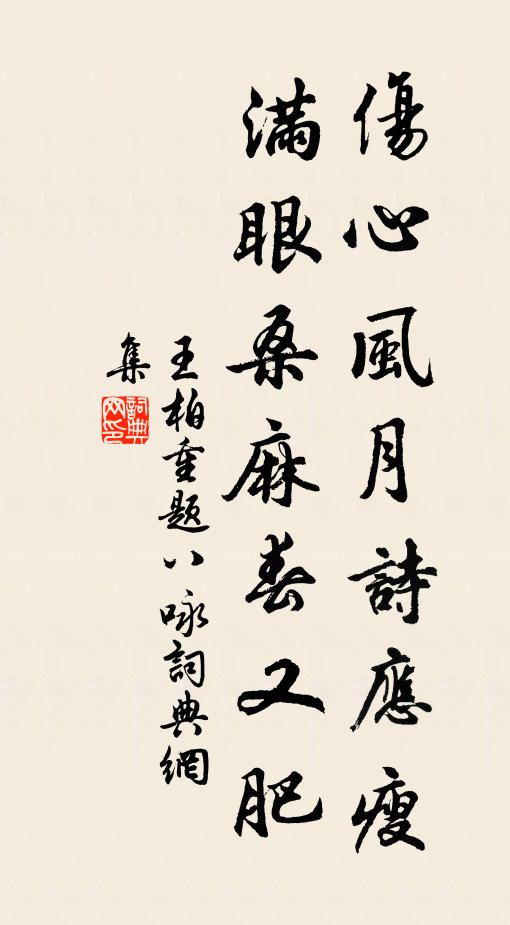 傷心風月詩應瘦
滿眼桑麻春又肥
王柏重題八咏詞典網
集
詞典網印